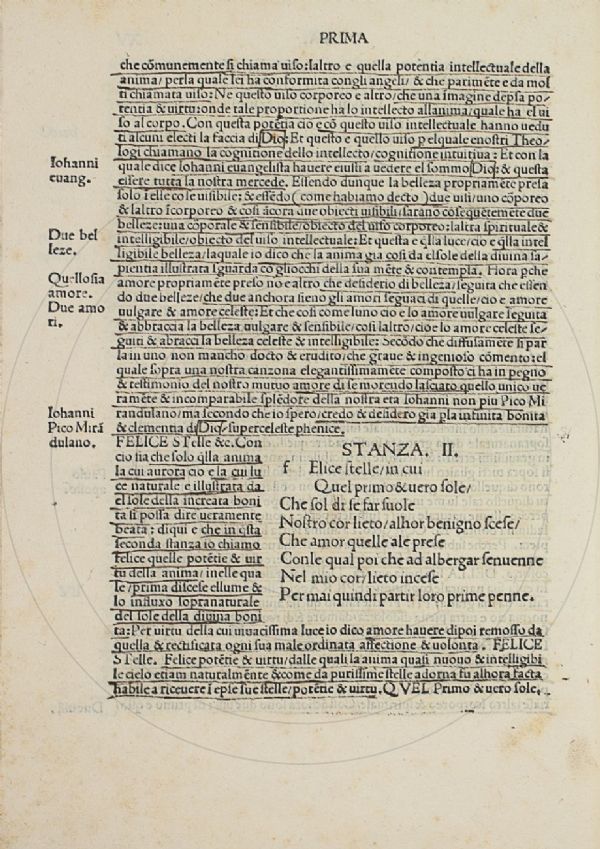 PRIMA
che cõmunemente si chiama uiso: laltro e quella potentia intellectuale della
anima/ per la quale lei ha conformita con gli angeli/ & che parimẽte e da mol
ti chiamata uiso: Ne questo uiso corporeo e altro/ che una imagine depsa po-
tentia & uirtu: onde tale proportione ha lo intellecto allanima/ quale ha el ui
so al corpo. Con questa potẽtia cio e cõ questo uiso intellectuale hanno uedu
ti alcuni electi la faccia di Dio: Et questo e quello uiso pel quale enostri Theo-
logi chiamano la cognitione dello intellecto/ cognitione intuitiua: Et con la
quale dice Iohanni euangelista hauere eiusti a uedere el sommo Dio: & questa
essere tutta la nostra mercede. Essendo dunque la belleza propriamẽte presa
solo ĩ elle cose uisibile: & essẽdo ( come habiamo decto ) due uisi/ uno cõporeo
& laltro ĩcorporeo & cosi ãcora due obiecti uisibili/ sarano cõsequẽtemẽte due
belleze: una cõporale & sensibile/ obiecto del uiso corporeo: laltra spirituale &
intelligibile/ obiecto del uiso intellectuale: Et questa e q̃lla luce/ cio e q̃lla intel
ligibile belleza/ la quale io dico che la anima gia cosi da el sole della diuina sa-
pientia illustrata sguarda cõ gliocchi della sua mẽte & contempla. Hora pche
amore propriamẽte preso no e altro che desiderio di belleza/ seguita che essen
do due belleze/ che due anchora sieno gli amori seguaci di quelle/ cio e amore
uulgare & amore celeste: Et che cosi come luno cio e lo amore uulgare seguita
& abbraccia la belleza uulgare & sensibile/ cosi laltro/ cioe lo amore celeste se-
guiti & abracci la belleza celeste & intelligibile: Secõdo che diffusamẽte si par
la in uno non mancho docto & erudito/ che graue & ingenioso cõmento: el
quale sopra una nostra canzona elegantissimamẽte composto ci ha in pegno
& testimonio del nostro mutuo amore di se morendo lasciato quello unico ue
ramẽte & incomparabile splẽdore della nostra eta Iohanni non piu Pico Mi-
randulano/ ma secondo che io spero/ credo & desidero gia p la infinita bonita
& clementia di Dio supercleste phenice.
Iohanni
euang.
Due bel
leze.
Quello sia
amore.
Due amo
ri.
Iohanni
Pico Mirã
dulano.
FELICE STelle &c. Con
cio sia che solo q̃lla anima
la cui aurora cio e la cui lu
ce naturale e illustrata da
el sole della increata boni
ta si possa dire ueramente
beata: di qui e che in esta
seconda stanza io chiamo
felice quelle potẽtie & uir
tu della anima/ inelle qua
le/ prima discese ellume &
lo influxo sopranaturale
del sole della diuina boni
STANZA. II.
f Elice stelle/ in cui
Quel primo & uero sole/
Che sol di se far suole
Nostro cor lieto/ alhor benigno scese/
Che amor quelle ale prese
Con le qual poi che ad albergar senuenne
Nel mio cor/ lieto incese
Per mai quindi partir loro prime penne.
ta: Per uirtu della cui uiuacissima luce io dico amore hauere dipoi remosso da
quella & rectificata ogni sua male ordinata affectione & uolonta. FELICE
STelle. Felice potẽtie & uirtu/ dalle quali la anima quasi nuouo & intelligibi
le cielo etiam naturalmẽte & come da purissime stelle adorna fu alhora facta
habile a riceuere ĩ epse sue stelle/ potẽtie & uirtu. QVEL Primo & uero sole.